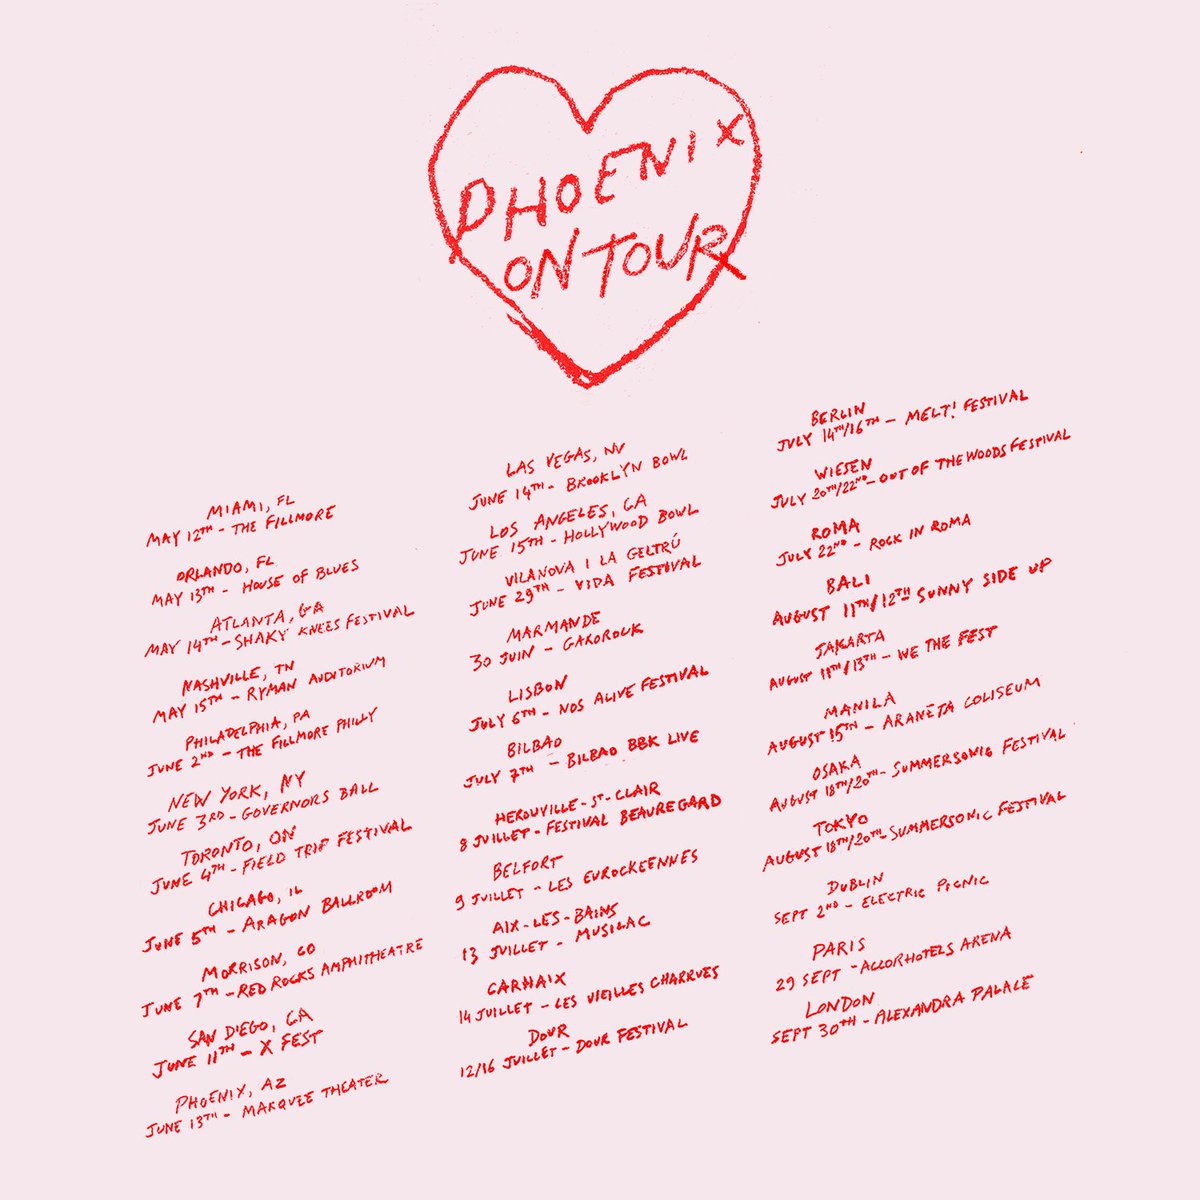 PHOENIX
ON TOUR
MIAMI, FL
MAY 12TH - THE FILLMORE
ORLANDO, FL
MAY 13TH - HOUSE OF BLUES
ATLANTA, GA
MAY 14TH - SHAKY KNEES FESTIVAL
NASHVILLE, TN
MAY 15TH - RYMAN AUDITORIUM
PHILADELPHIA, PA
JUNE 2ND - THE FILLMORE PHILLY
NEW YORK, NY
JUNE 3RD - GOVERNORS BALL
TORONTO, ON
JUNE 4TH - FIELD TRIP FESTIVAL
CHICAGO, IL
JUNE 5TH - ARAGON BALLROOM
MORRISON, CO
JUNE 7TH - RED ROCKS AMPHITHEATRE
SAN DIEGO, CA
JUNE 11TH - X FEST
PHOENIX, AZ
JUNE 13TH - MARQUEE THEATER
LAS VEGAS, NV
JUNE 14TH - BROOKLYN BOWL
LOS ANGELES, CA
JUNE 15TH - HOLLYWOOD BOWL
VILANOVA I LA GELTRÚ
JUNE 29TH - VIDA FESTIVAL
MARMANDE
30 JUIN - GAROROCK
LISBON
JULY 6TH - NOS ALIVE FESTIVAL
BILBAO
JULY 7TH - BILBAO BBK LIVE
HEROUVILLE-ST-CLAIR
8 JUILLET - FESTIVAL BEAUREGARD
BELFORT
9 JUILLET - LES EUROCKEENNES
AIX-LES-BAINS
13 JUILLET - MUSILAC
CARHAIX
14 JUILLET - LES VIEILLES CHARRUES
DOUR
12/16 JUILLET - DOUR FESTIVAL
BERLIN
JULY 14TH/16TH - MELT! FESTIVAL
WIESEN
JULY 20TH/22ND - OUT OF THE WOODS FESTIVAL
ROMA
JULY 22ND - ROCK IN ROMA
BALI
AUGUST 11TH/12TH - SUNNY SIDE UP
JAKARTA
AUGUST 11TH/13TH - WE THE FEST
MANILA
AUGUST 15TH - ARANETA COLISEUM
OSAKA
AUGUST 18TH/20TH - SUMMERSONIC FESTIVAL
TOKYO
AUGUST 18TH/20TH - SUMMERSONIC FESTIVAL
DUBLIN
SEPT 2ND - ELECTRIC PICNIC
PARIS
29 SEPT - ACCORHOTELS ARENA
LONDON
SEPT 30TH - ALEXANDRA PALACE